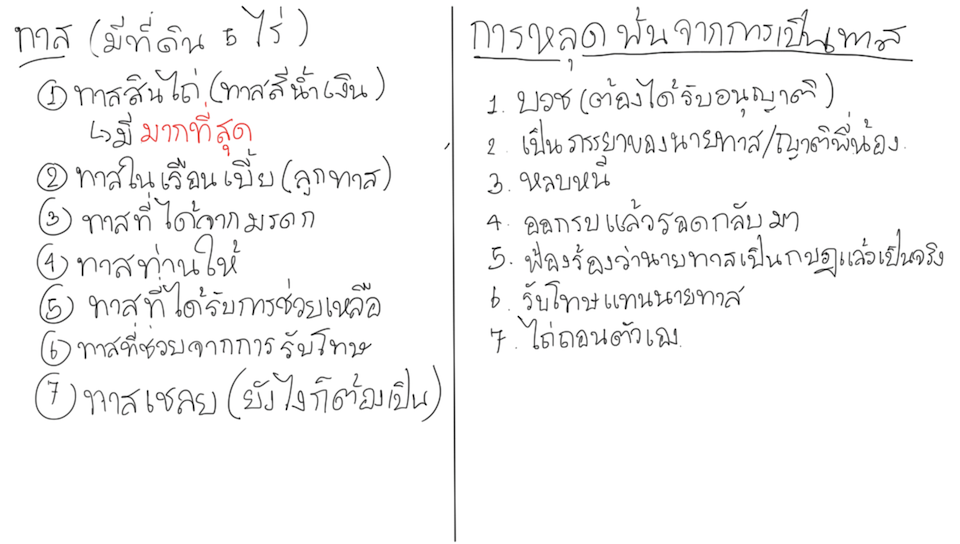 ทาส (มีที่ดิน 5 ไร่)
① ทาสสินไถ่ (ทาสสีน้ำเงิน)
↳ มี มากที่สุด
② ทาสในเรือนเบี้ย (ลูกทาส)
③ ทาสที่ได้จากมรดก
④ ทาสท่านให้
⑤ ทาสที่ได้รับการช่วยเหลือ
⑥ ทาสที่ช่วยจากการรับโทษ
⑦ ทาสเชลย (ยังไงก็ต้องเป็น)
การหลุดพ้นจากการเป็นทาส
1. บวช (ต้องได้รับอนุญาติ)
2. เป็นภรรยาของนายทาส/ญาติพี่น้อง.
3. หลบหนี
4. ออกรบแล้วรอดกลับมา
5. ฟ้องร้องว่านายทาสเป็นกบฏแล้วเป็นจริง
6. รับโทษแทนนายทาส
7. ไถ่ถอนตัวเอง.